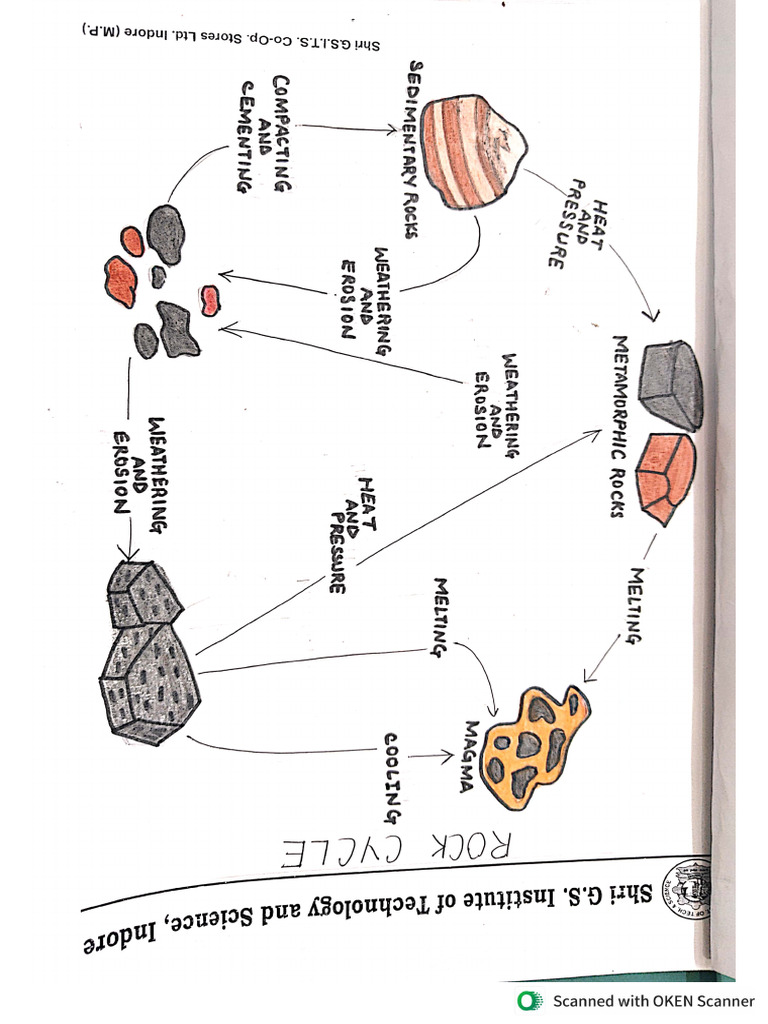 Shri G.S. Institute of Technology and Science, Indore
ROCK CYCLE
SEDIMENTARY ROCKS
HEAT
AND
PRESSURE
METAMORPHIC ROCKS
MELTING
MAGMA
COOLING
MELTING
HEAT
AND
PRESSURE
WEATHERING
AND
EROSION
WEATHERING
AND
EROSION
WEATHERING
AND
EROSION
COMPACTING
AND
CEMENTING
Shri G.S.I.T.S. Co-Op. Stores Ltd. Indore (M.P.)
Scanned with OKEN Scanner